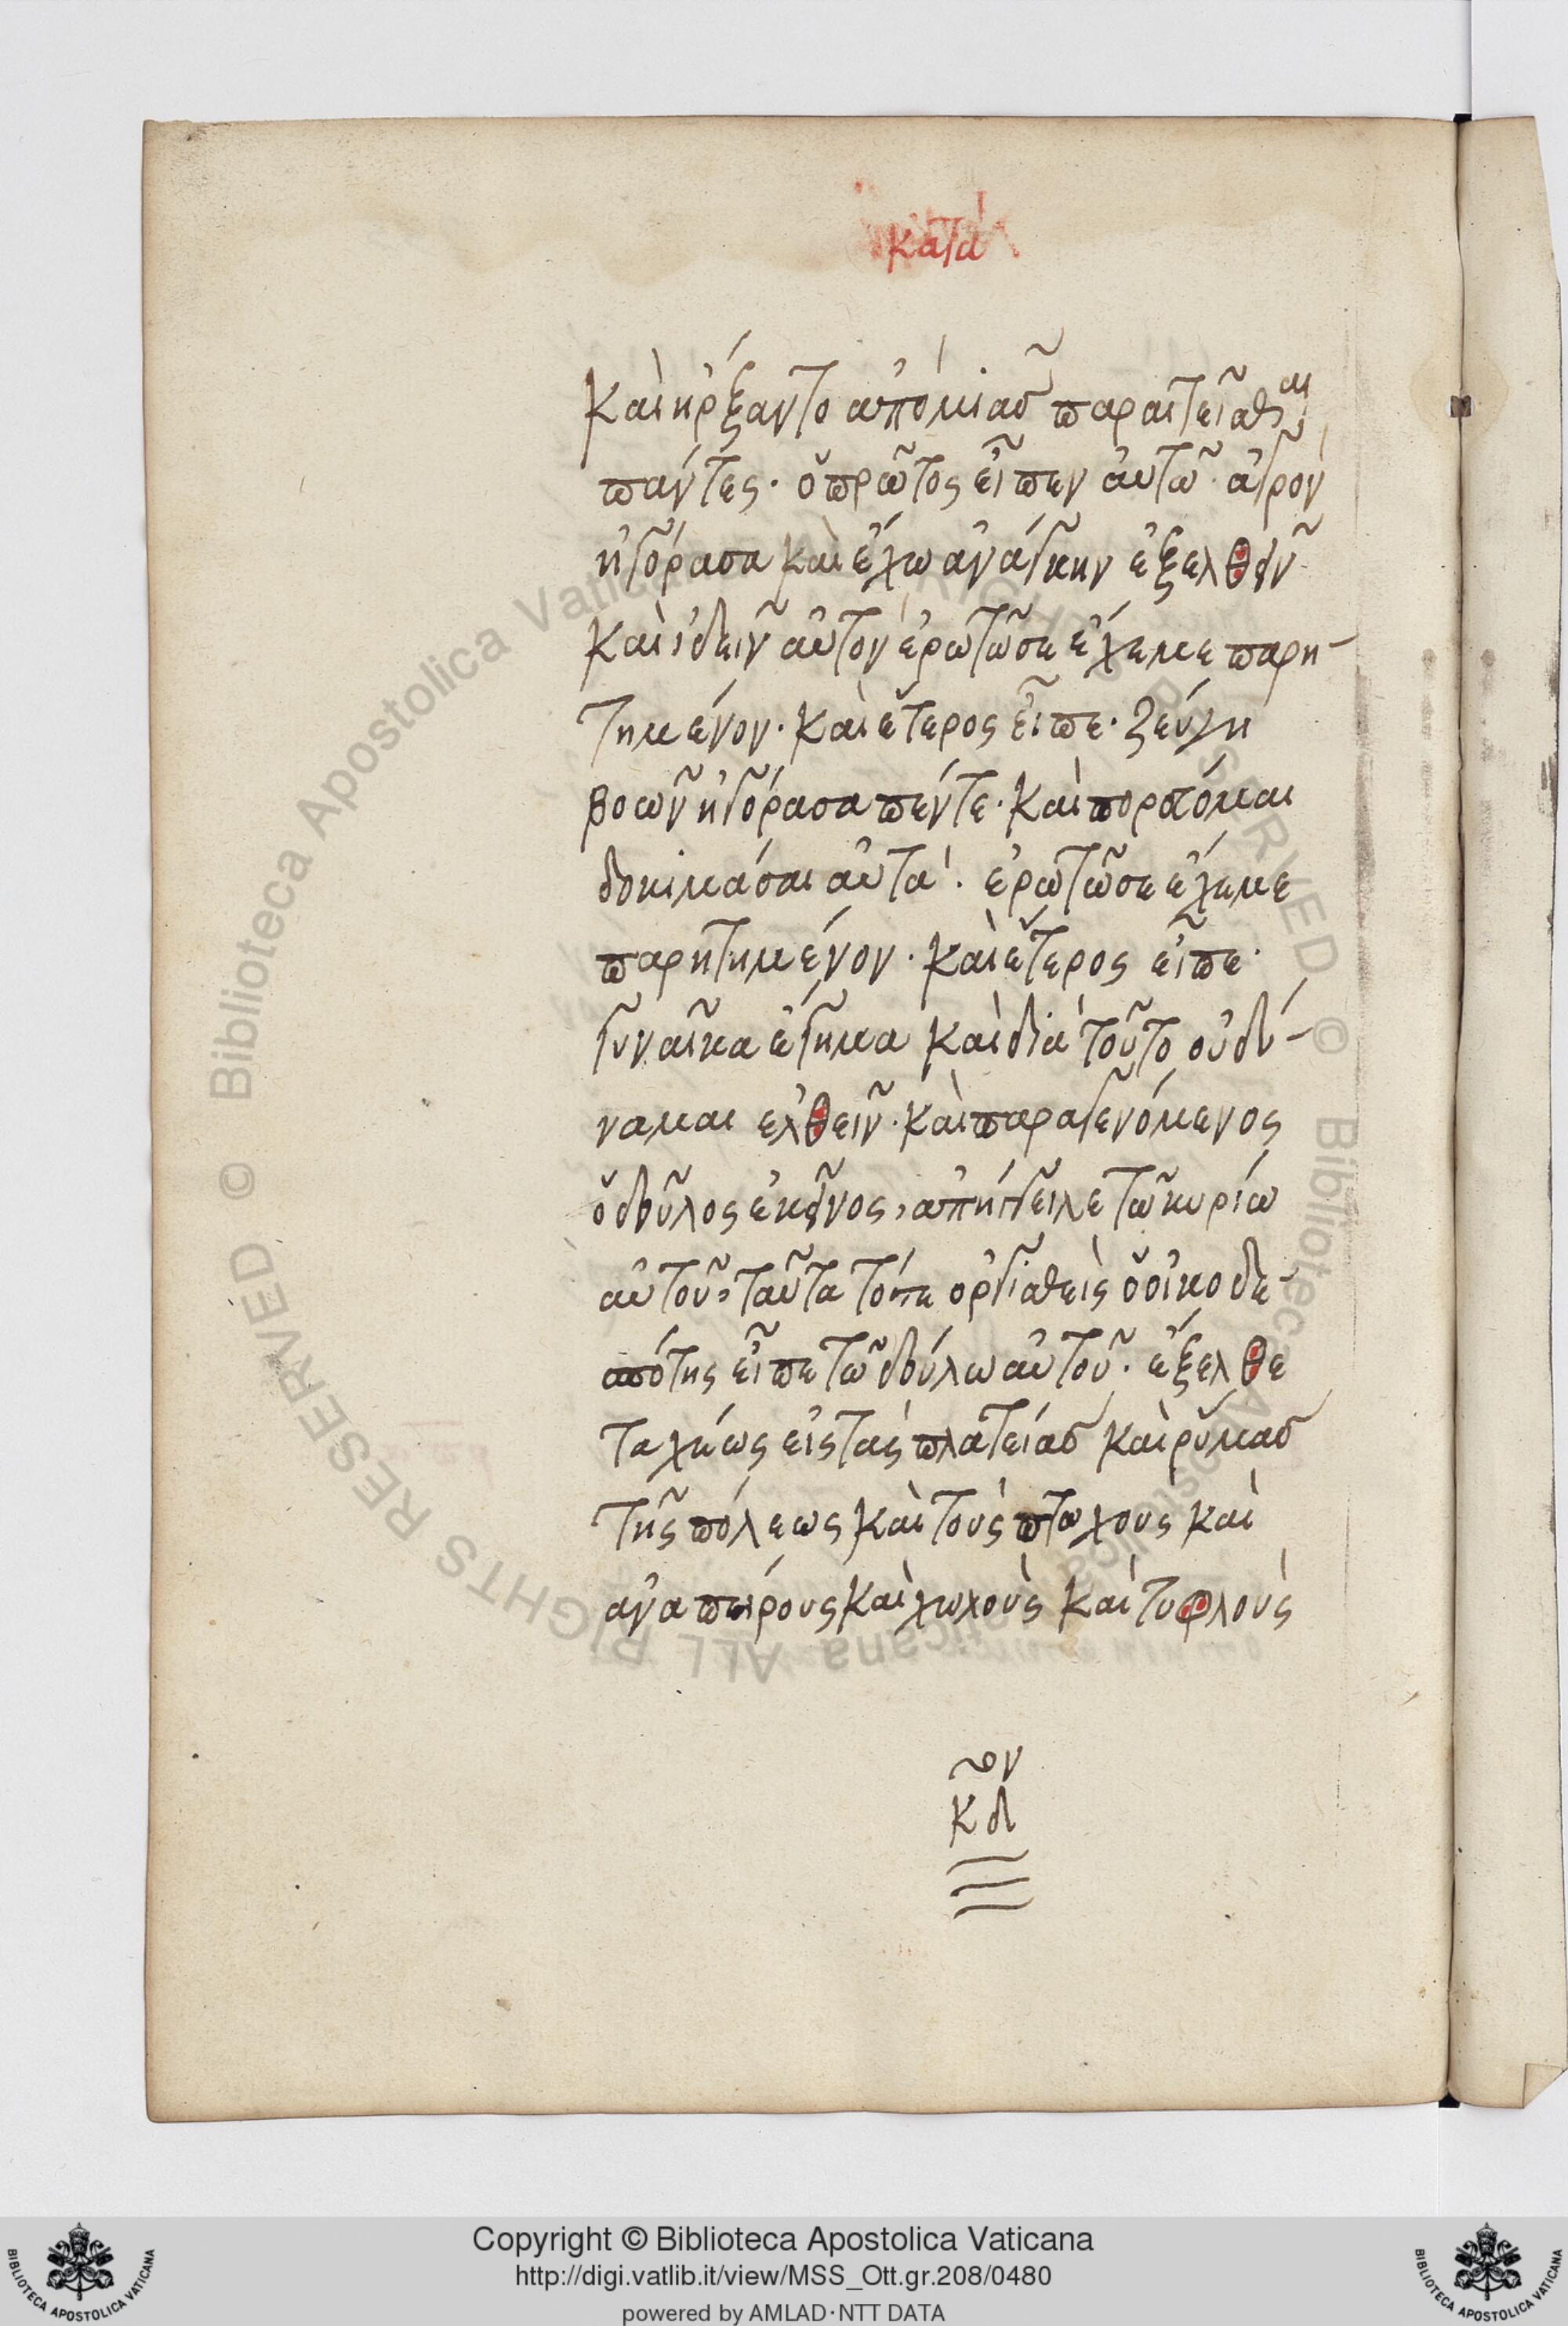 κατὰ
Καὶ ἤρξαντο ἀπὸ μιᾶσ παραιτεῖσθαι
πάντες· ὁ πρῶτος εἶπεν αὐτῶ· ἀγρὸν
ἠγόρασα καὶ ἔχω ἀνάγκην ἐξελθεῖν
καὶ ἰδεῖν αὐτὸν ἐρωτῶ σε ἔχε με παρη-
τημένον· καὶ ἕτερος εἶπε· ζεύγη
βοῶν ἠγόρασα πέντε· καὶ πορεύομαι
δοκιμάσαι αὐτά· ἐρωτῶ σε ἔχε με
παρητημένον· καὶ ἕτερος εἶπε·
γυναῖκα ἔγημα καὶ διὰ τοῦτο οὐ δύ-
ναμαι ἐλθεῖν· καὶ παραγενόμενος
ὁ δοῦλος ἐκεῖνος, ἀπήγγειλε τῶ κυρίω
αὐτοῦ, ταῦτα τότε ὀργισθεὶς ὁ οἰκοδε-
σπότης εἶπε τῶ δούλω αὐτοῦ· ἔξελθε
ταχέως εἰς τὰς πλατείασ καὶ ῥύμασ
τῆς πόλεως καὶ τοὺς πτωχοὺς καὶ
ἀναπείρους καὶ χωλοὺς καὶ τυφλοὺς
κδ
Copyright © Biblioteca Apostolica Vaticana
http://digi.vatlib.it/view/MSS_Ott.gr.208/0480
powered by AMLAD·NTT DATA
BIBLIOTECA APOSTOLICA VATICANA
BIBLIOTECA APOSTOLICA VATICANA
© Biblioteca Apostolica Vaticana ALL RIGHTS RESERVED
© Biblioteca Apostolica Vaticana ALL RIGHTS RESERVED